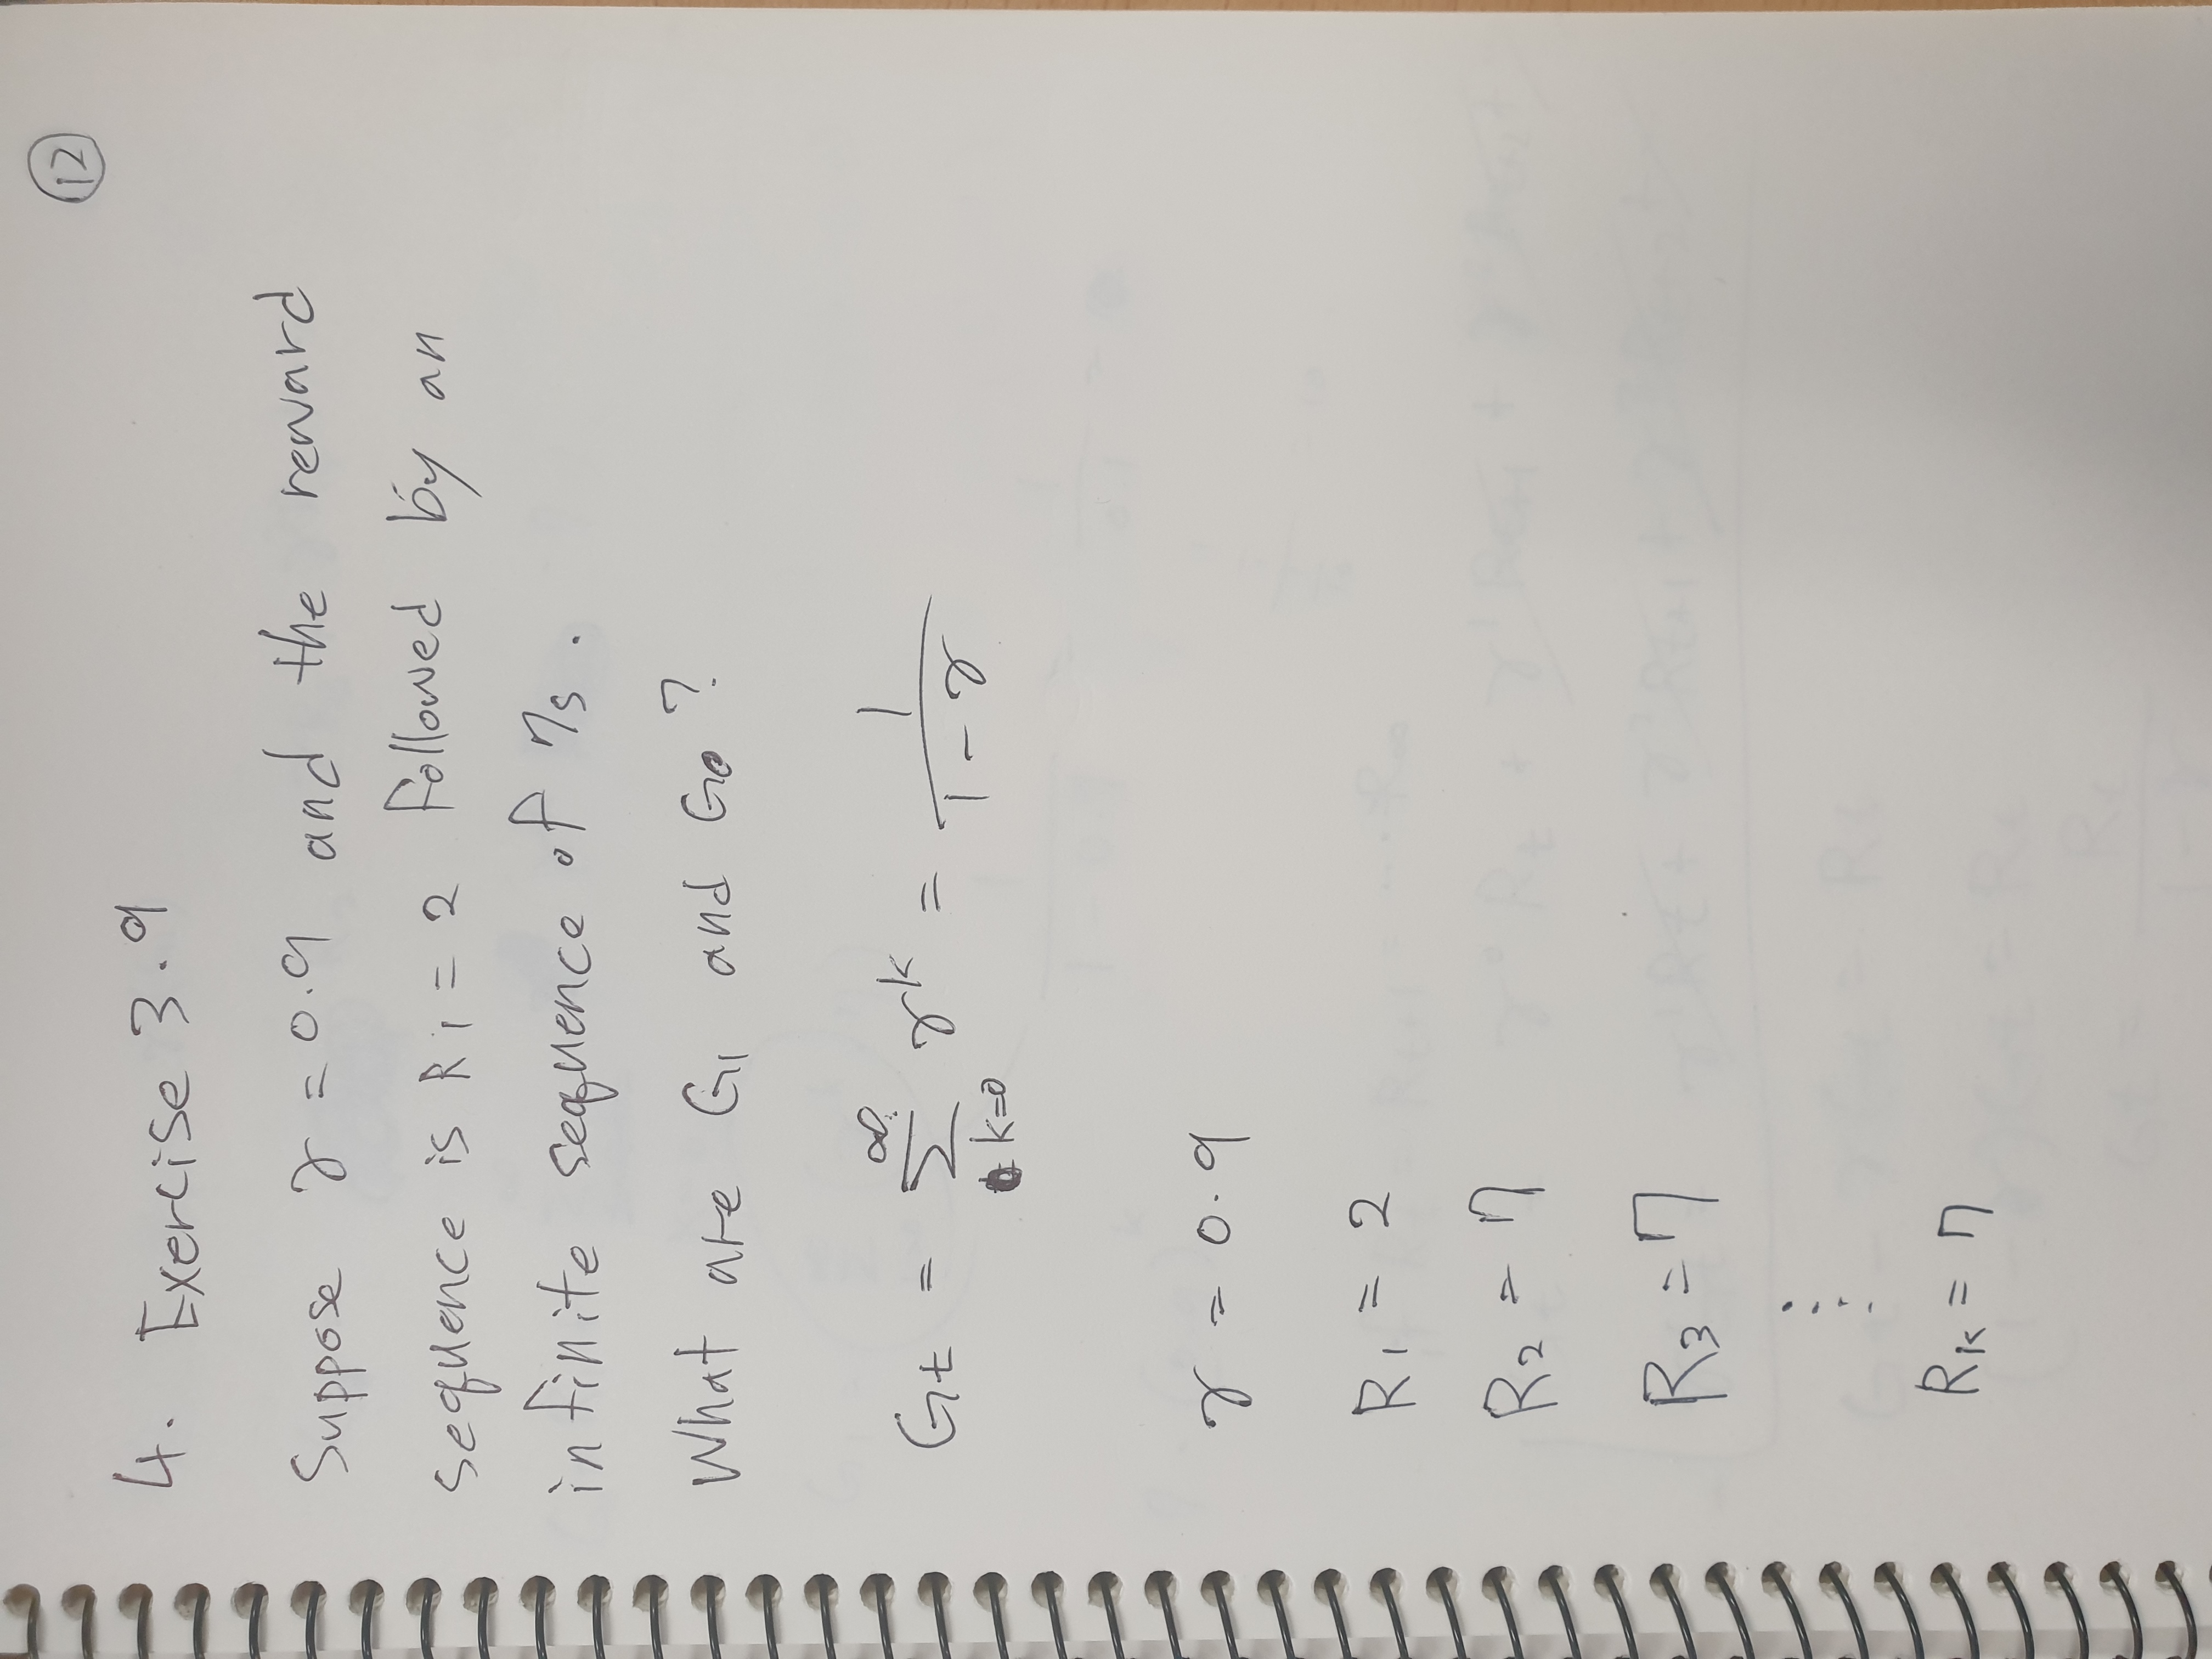 12
4. Exercise 3.9
Suppose γ = 0.9 and the reward
sequence is R1 = 2 followed by an
infinite sequence of 7s.
What are G1 and G0?
Gt = ∑ k=0 ∞ γ^k = 1 / (1-γ)
γ = 0.9
R1 = 2
R2 = 7
R3 = 7
⋮
Rk = 7